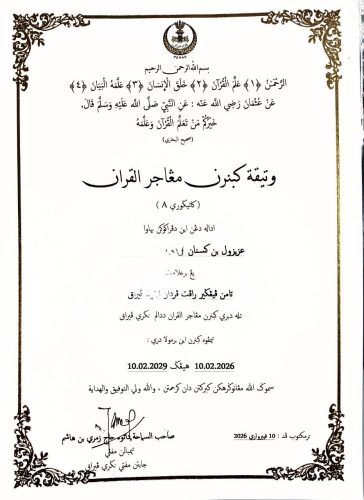 PERAK
بسم الله الرحمن الرحيم
الرَّحْمٰنُ ﴿١﴾ عَلَّمَ الْقُرْآنَ ﴿٢﴾ خَلَقَ الْإِنسَانَ ﴿٣﴾ عَلَّمَهُ الْبَيَانَ ﴿٤﴾
عَنْ عُثْمَانَ رَضِيَ اللّٰه عَنْهُ : عَنِ النَّبِيِّ صَلَّى اللّٰه عَلَيْهِ وَسَلَّمَ قَالَ،
خَيْرُكُمْ مَنْ تَعَلَّمَ الْقُرْآنَ وَعَلَّمَهُ
(صحيح البخاري)
وثيقة كبنرن مڠاجر القرءان
(كاتيݢوري A )
اداله دڠن اين دڤراكوكن بهاوا
عزيزول بن كسنان
يڠ برعلامت
تامن ڤڠكير راقت
تله دبري كبنرن مڠاجر القرءان ددالم نݢري ڤيراق
تيمڤوه كبنرن اين برمولا دري :
10.02.2026 هيڠݢ 10.02.2029
سموݢ الله مڠانوݢرهكن كبركتن دان كرحمتن ، والله ولي التوفيق والهداية
ترمكتوب ڤد : 10 فيبواري 2026
صاحب السماحة داتوء حاج زمري بن هاشم
تيمبالن مفتي
جابتن مفتي نݢري ڤيراق